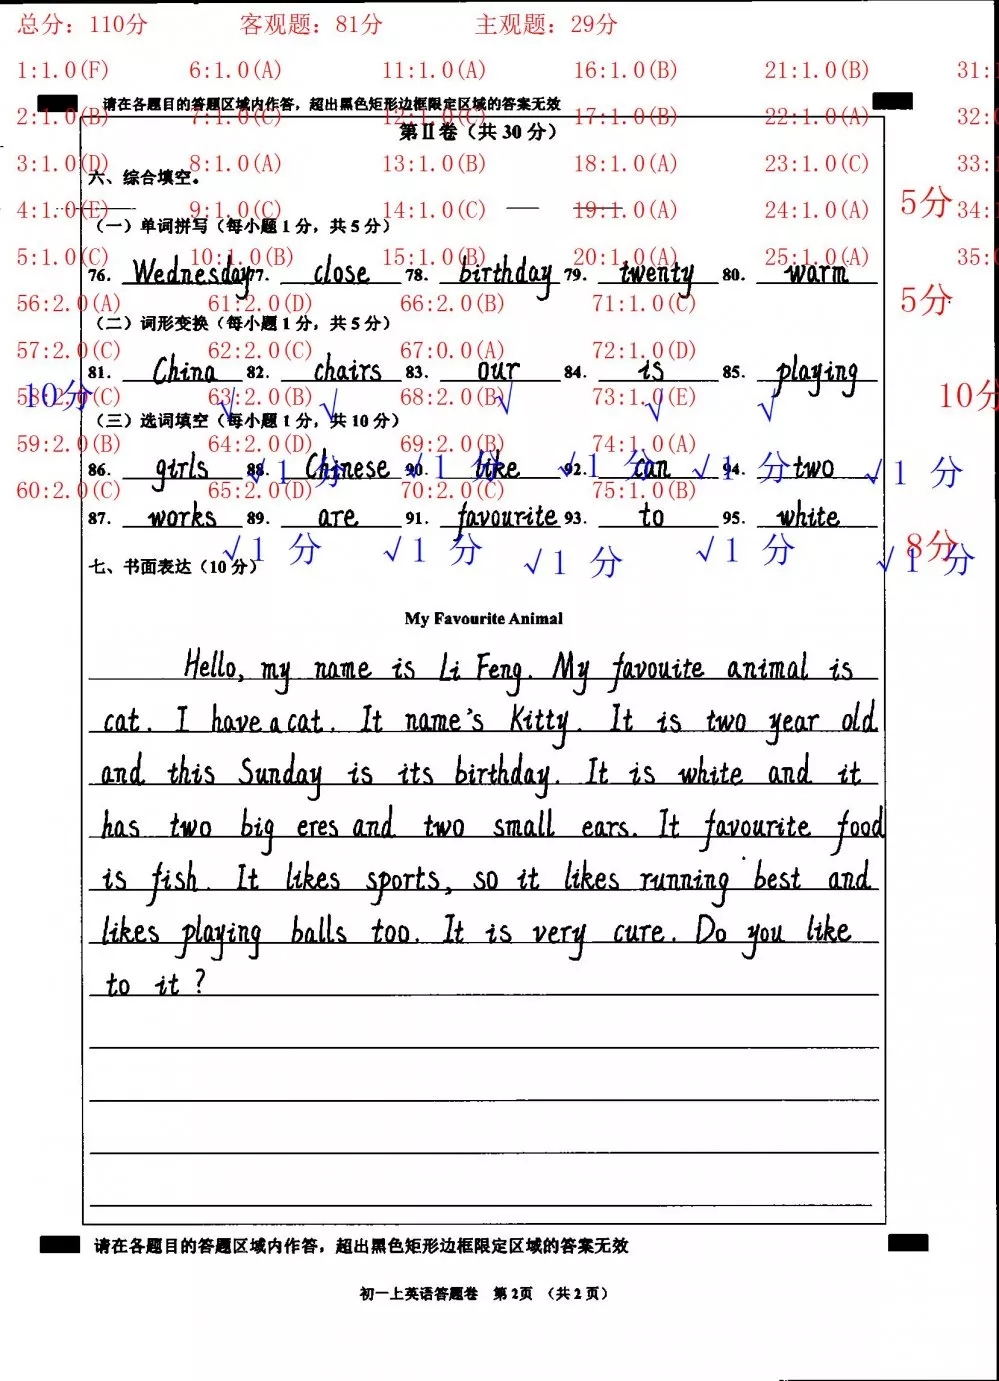 总分：110分 客观题：81分 主观题：29分
1:1.0(F) 6:1.0(A) 11:1.0(A) 16:1.0(B) 21:1.0(B) 31:
请在各题目的答题区域内作答，超出黑色矩形边框限定区域的答案无效
2:1.0(B) 7:1.0(C) 12:1.0(C) 17:1.0(B) 22:1.0(A) 32:
第Ⅱ卷（共 30 分）
3:1.0(D) 8:1.0(A) 13:1.0(B) 18:1.0(A) 23:1.0(C) 33:
六、综合填空。
4:1.0(E) 9:1.0(C) 14:1.0(C) 19:1.0(A) 24:1.0(A) 5分 34:
（一）单词拼写（每小题 1 分，共 5 分）
5:1.0(C) 10:1.0(B) 15:1.0(B) 20:1.0(A) 25:1.0(A) 35:
76. Wednesday 77. close 78. birthday 79. twenty 80. warm
56:2.0(A) 61:2.0(D) 66:2.0(B) 71:1.0(C) 5分
（二）词形变换（每小题 1 分，共 5 分）
57:2.0(C) 62:2.0(C) 67:0.0(A) 72:1.0(D)
81. China 82. chairs 83. our 84. is 85. playing
10分 58:2.0(C) 63:2.0(B) 68:2.0(B) 73:1.0(E) 10分
√ √ √ √ √
（三）选词填空（每小题 1 分，共 10 分）
59:2.0(B) 64:2.0(D) 69:2.0(B) 74:1.0(A)
86. girls 88. Chinese 90. like 92. can 94. two
√1 分 √1 分 √1 分 √1 分 √1 分
60:2.0(C) 65:2.0(D) 70:2.0(C) 75:1.0(B)
87. works 89. are 91. favourite 93. to 95. white
√1 分 √1 分 √1 分 √1 分 √1 分 8分
七、书面表达（10 分）
My Favourite Animal
Hello, my name is Li Feng. My favouite animal is
cat. I have a cat. It name's Kitty. It is two year old
and this Sunday is its birthday. It is white and it
has two big eres and two small ears. It favourite food
is fish. It likes sports, so it likes running best and
likes playing balls too. It is very cure. Do you like
to it?
请在各题目的答题区域内作答，超出黑色矩形边框限定区域的答案无效
初一上英语答题卷 第 2页 （共 2 页）